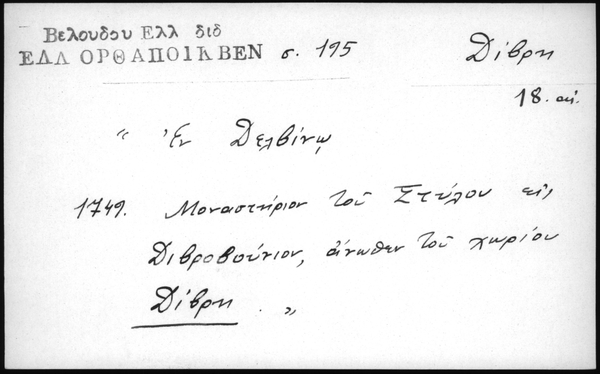 Βελουδου Ελλ διδ
ΕΛΛ ΟΡΘΑΠΟΙΚΒΕΝ σ. 195
Δίβρη
18. αἰ.
“ Ἐν Δελβίνῳ
1749. Μοναστήριον τοῦ Στύλου εἰς
Διβροβούνιον, ἄνωθεν τοῦ χωρίου
Δίβρη. „